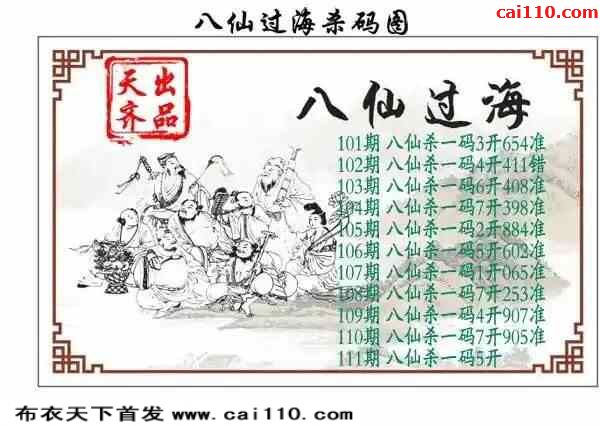 八仙过海杀码图
cai110.com
天齐出品
八仙过海
101期 八仙杀一码3开654准
102期 八仙杀一码4开411错
103期 八仙杀一码6开408准
104期 八仙杀一码7开398准
105期 八仙杀一码2开884准
106期 八仙杀一码5开602准
107期 八仙杀一码1开065准
108期 八仙杀一码7开253准
109期 八仙杀一码4开907准
110期 八仙杀一码7开905准
111期 八仙杀一码5开
布衣天下首发 www.cai110.com